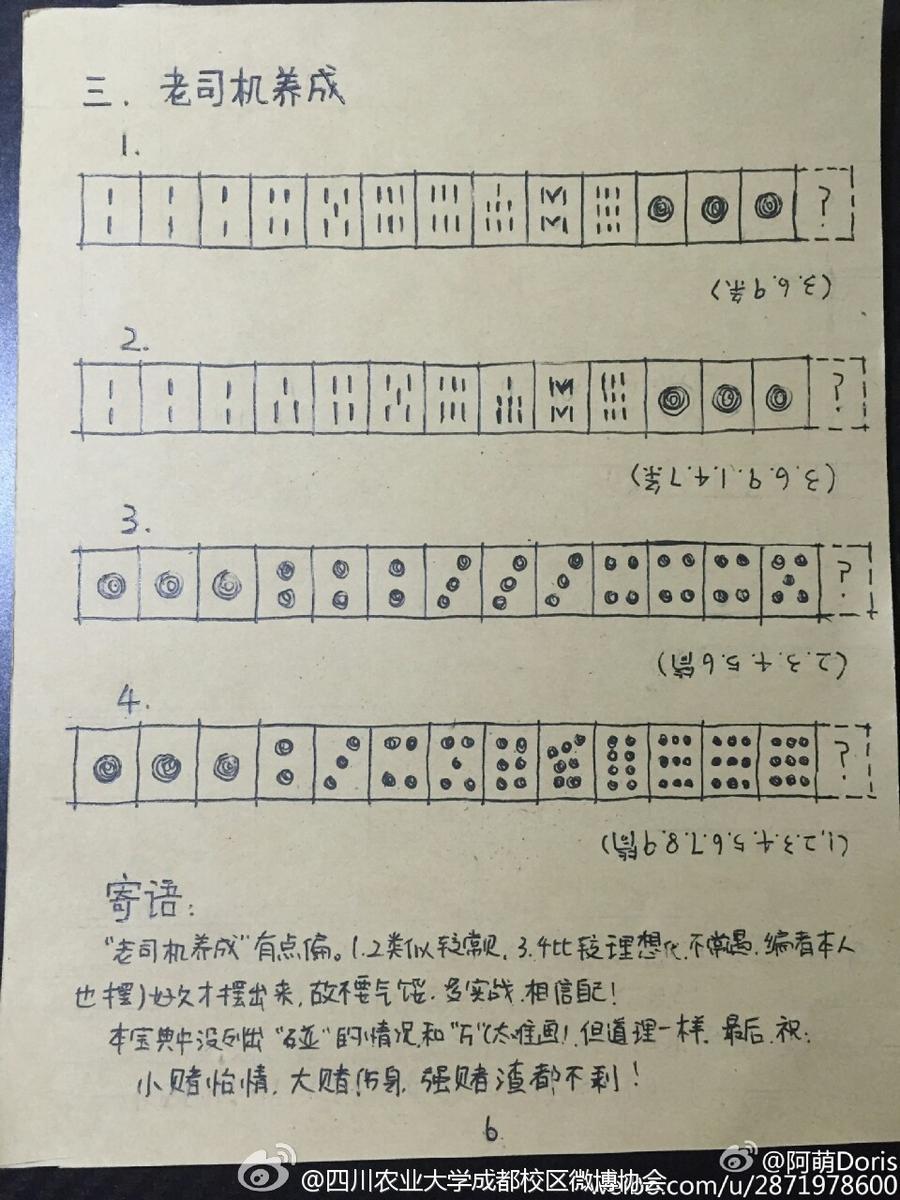 三. 老司机养成
1.
?
(3.6.9条)
2.
?
(3.6.9.1.4.7条)
3.
?
(2.3.4.5.6筒)
4.
?
(1,2.3.4.5.6.7.8.9筒)
寄语:
“老司机养成”有点偏。1.2类似较常见, 3.4比较理想化,不常遇.编者本人
也摆了好久才摆出来,故不要气馁.多实战.相信自己!
本宝典中没列出“碰”的情况和“万”(太难画).但道理一样.最后.祝:
小赌怡情,大赌伤身,强赌渣都不剩!
6
@四川农业大学成都校区微博协会
@阿萌Doris
weibo.com/u/2871978600